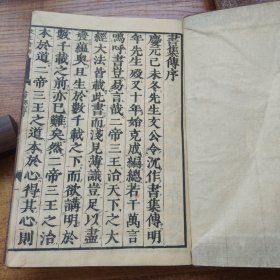 書集傳序
慶元己未冬先生文公令沈作書集傳明
年先生殁又十年始克成編緫若干萬言
嗚呼書豈易言哉二帝三王治天下之大
經大法皆載此書而淺見薄識豈足以盡
發蘊奥且生於數千載之下而欲講明於
數千載之前亦已難矣然二帝三王之治
本於道二帝三王之道本於心得其心則